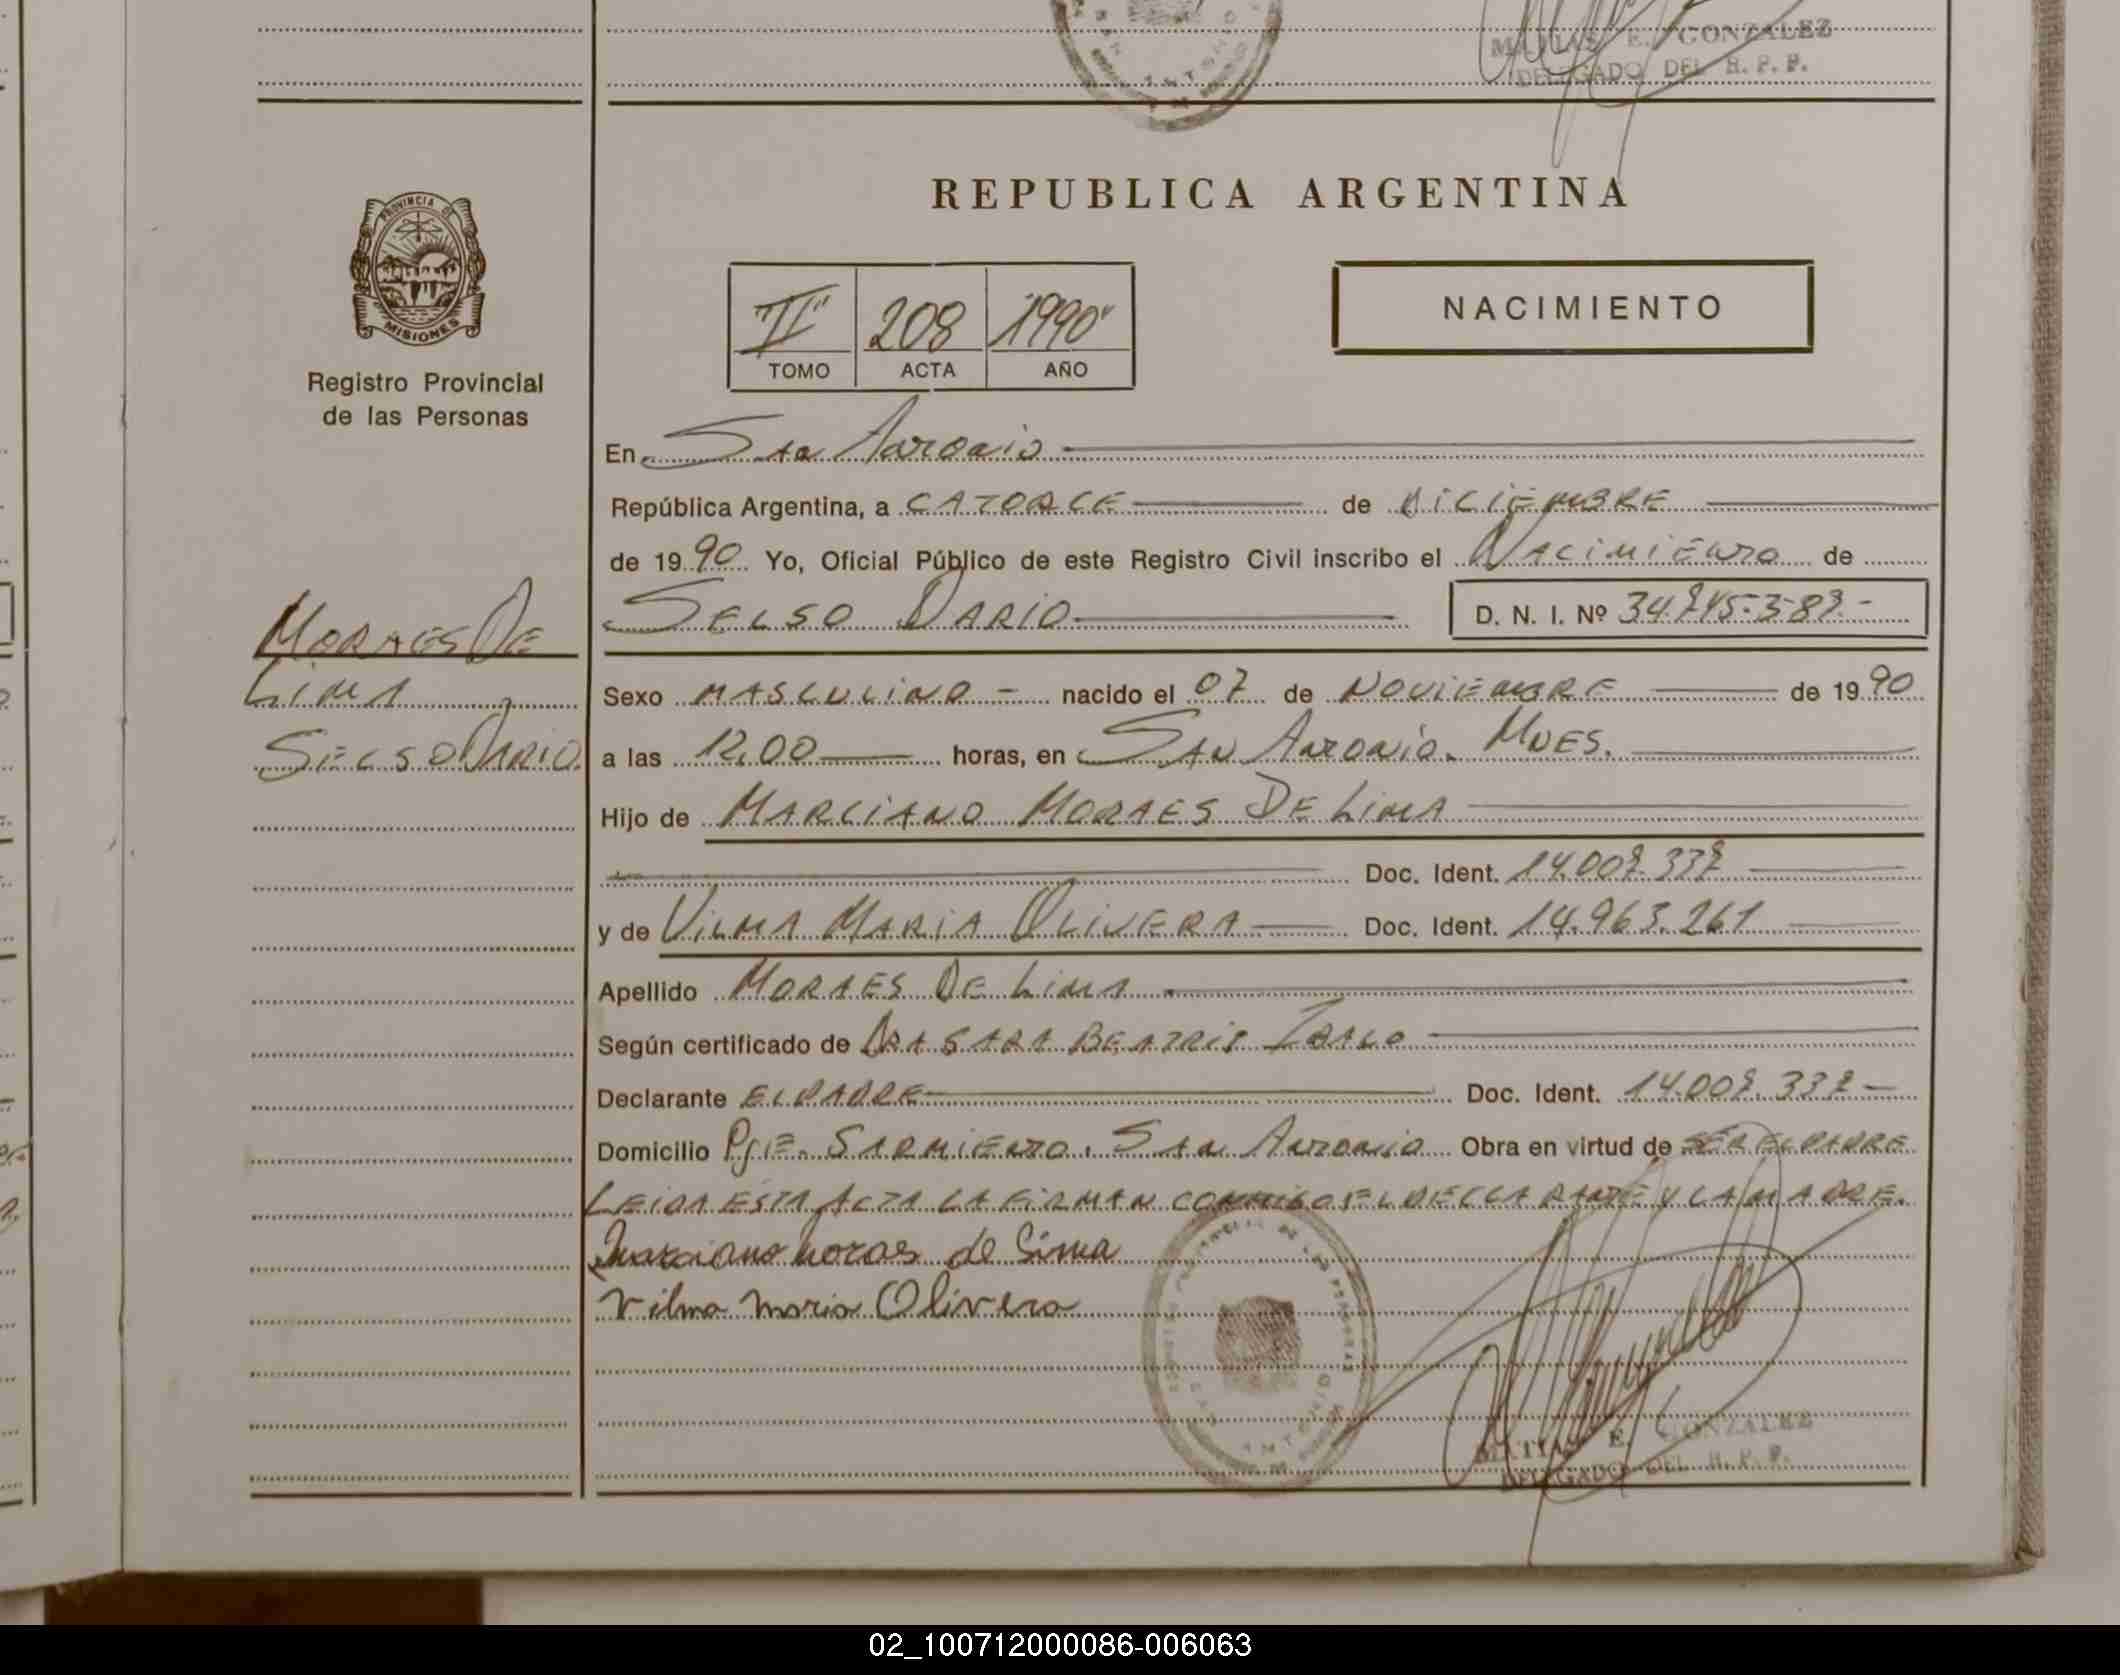 MATIAS E. GONZALEZ
DELEGADO DEL R. P. P.
PROVINCIA DE
MISIONES
Registro Provincial
de las Personas
REPUBLICA ARGENTINA
II 208 1990
TOMO ACTA AÑO
NACIMIENTO
En San Antonio
República Argentina, a CATORCE de DICIEMBRE
de 1990 Yo, Oficial Público de este Registro Civil inscribo el NACIMIENTO de
SELSO DARIO D. N. I. Nº
MORAES DE
LIMA
SELSO DARIO
Sexo MASCULINO - nacido el 07 de NOVIEMBRE de 1990
a las 12,00 horas, en SAN ANTONIO. MNES.
Hijo de MARCIANO MORAES DE LIMA
Doc. Ident. 14.007.337
y de VILMA MARIA OLIVERA Doc. Ident. 14.963.261
Apellido MORAES DE LIMA
Según certificado de DRA SARA BEATRIS
Declarante EL PADRE Doc. Ident. 14.007.337
Domicilio PJE. SARMIENTO. SAN ANTONIO Obra en virtud de SER EL PADRE
LEIDA ESTA ACTA LA FIRMAN CONMIGO EL DECLARANTE Y LA MADRE.
Marciano moraes de Lima
Vilma maria Olivera
MATIAS E. GONZALEZ
DELEGADO DEL R. P. P.
02_100712000086-006063